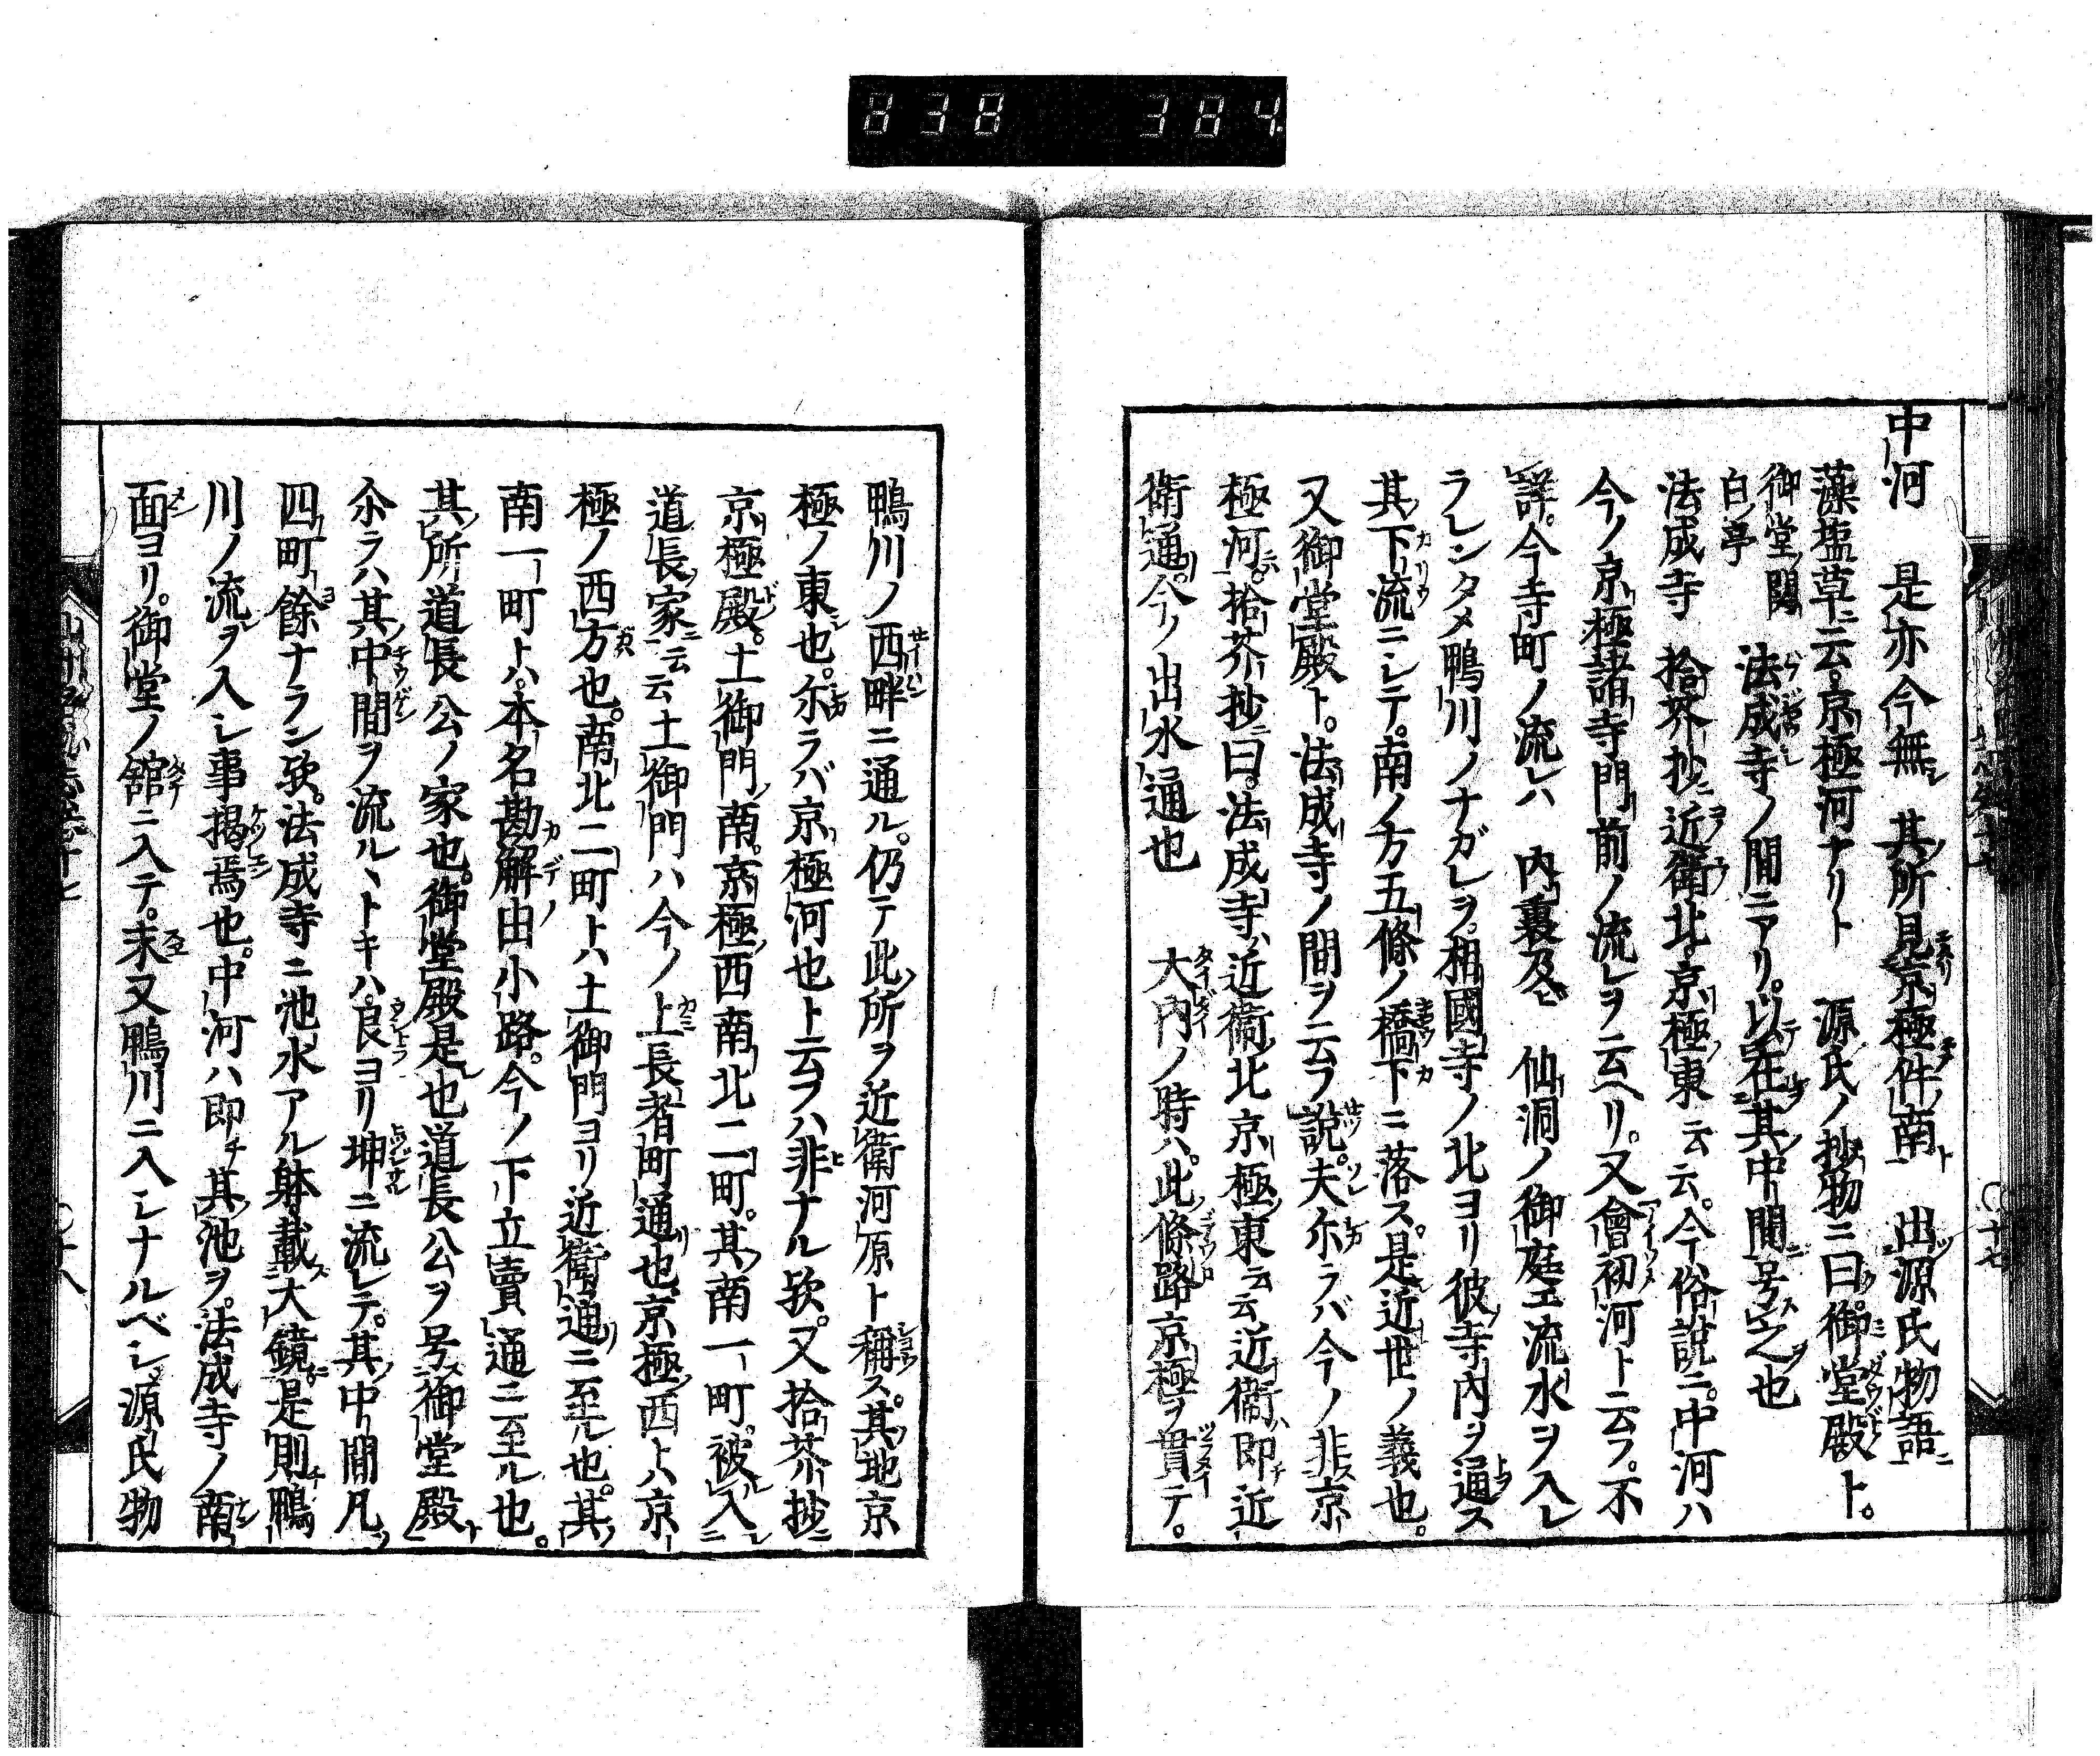 838 384
中河 是亦今無 其所見京極件南 出源氏物語
藻塩草ニ云京極河ナリト 源氏ノ抄物ニ曰御堂殿ト。
御堂関白ノ亭 法成寺ノ間ニアリ。以在其中間号之也
法成寺 拾芥抄ニ近衛北。京極東云云。今俗説ニ。中河ハ
今ノ京極諸寺門前ノ流レヲ云ヘリ。又會初河ト云フ。不
詳。今寺町ノ流レハ 内裏及ビ 仙洞ノ御庭エ流水ヲ入レ
ラレンタメ鴨川ノナガレヲ。相國寺ノ北ヨリ彼寺内ヲ通ス
其下流ニシテ。南ノ方五條ノ橋下ニ落ス。是近世ノ義也。
又御堂殿ト。法成寺ノ間ヲ云フ説。夫尓ラバ今ノ非京
極河。拾芥抄曰。法成寺ハ近衛北京極東云云近衛ハ即チ近
衛通。今ノ出水通也 大内ノ時ハ。此條路京極ヲ貫テ。
鴨川ノ西畔ニ通ル。仍テ此所ヲ近衛河原ト稱ス。其地京
極ノ東也。尓ラバ京極河也ト云フハ非ナル欤。又拾芥抄
京極殿。土御門南。京極西南北二町。其南一町。被入
道長家云云土御門ハ今ノ上長者町通也。京極西トハ京
極ノ西方也。南北二町トハ土御門ヨリ近衛通ニ至ル也。其
南一町トハ。本名勘解由小路。今ノ下立賣通ニ至ル也。
其所道長公ノ家也。御堂殿是也道長公ヲ号御堂殿
尒ラハ其中間ヲ流ルヽトキハ。艮ヨリ坤ニ流レテ。其中間凡
四町餘ナラン欤。法成寺ニ池水アル躰載大鏡是則鴨
川ノ流ヲ入レ事掲焉也。中河ハ即チ其池ヲ。法成寺ノ南
面ヨリ。御堂ノ舘ニ入テ。末又鴨川ニ入シナルベシ。源氏物